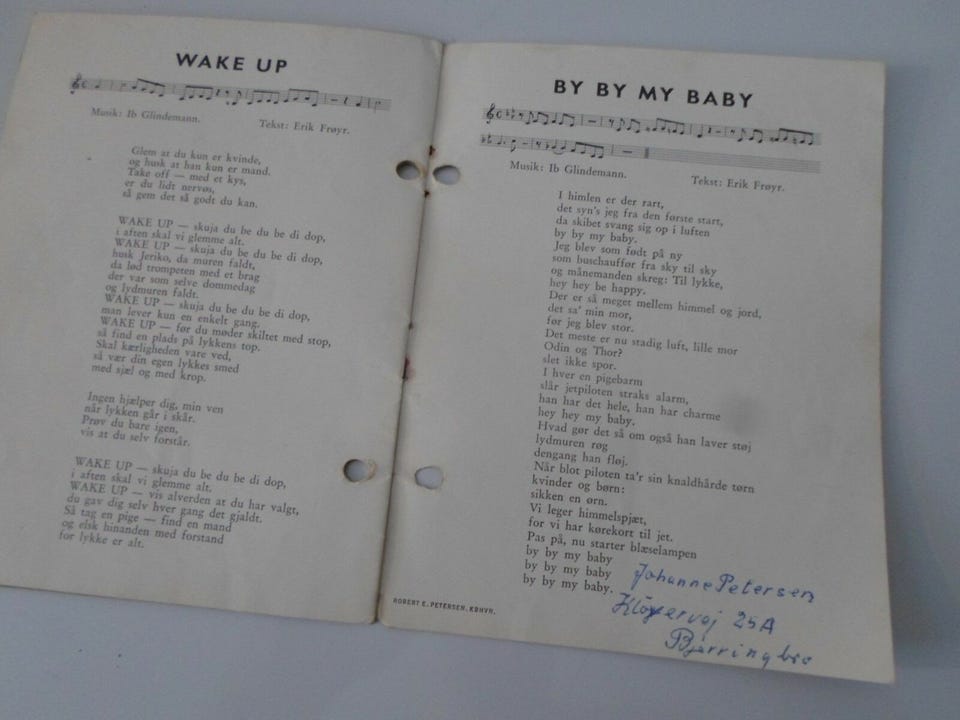 WAKE UP
Musik: Ib Glindemann. Tekst: Erik Frøyr.
Glem at du kun er kvinde,
og husk at han kun er mand.
Take off — med et kys,
er du lidt nervøs,
så gem det så godt du kan.
WAKE UP — skuja du be du be di dop,
i aften skal vi glemme alt.
WAKE UP — skuja du be du be di dop,
husk Jeriko, da muren faldt,
da lød trompeten med et brag
der var som selve dommedag
og lydmuren faldt.
WAKE UP — skuja du be du be di dop,
man lever kun en enkelt gang.
WAKE UP — før du møder skiltet med stop,
så find en plads på lykkens top.
Skal kærligheden vare ved,
så vær din egen lykkes smed
med sjæl og med krop.
Ingen hjælper dig, min ven
når lykken går i skår.
Prøv du bare igen,
vis at du selv forstår.
WAKE UP — skuja du be du be di dop,
i aften skal vi glemme alt.
WAKE UP — vis alverden at du har valgt,
du gav dig selv hver gang det gjaldt.
Så tag en pige — find en mand
og elsk hinanden med forstand
for lykke er alt.
BY BY MY BABY
Musik: Ib Glindemann. Tekst: Erik Frøyr.
I himlen er der rart,
det syn's jeg fra den første start,
da skibet svang sig op i luften
by by my baby.
Jeg blev som født på ny
som buschauffør fra sky til sky
og månemanden skreg: Til lykke,
hey hey be happy.
Der er så meget mellem himmel og jord,
det sa' min mor,
før jeg blev stor.
Det meste er nu stadig luft, lille mor
Odin og Thor?
slet ikke spor.
I hver en pigebarm
slår jetpiloten straks alarm,
han har det hele, han har charme
hey hey my baby.
Hvad gør det så om også han laver støj
lydmuren røg
dengang han fløj.
Når blot piloten ta'r sin knaldhårde tørn
kvinder og børn:
sikken en ørn.
Vi leger himmelspjæt,
for vi har kørekort til jet.
Pas på, nu starter blæselampen
by by my baby
by by my baby
by by my baby.
Johanne Petersen
Kløvervej 25A
Bjerringbro
ROBERT E. PETERSEN, KBHVN.